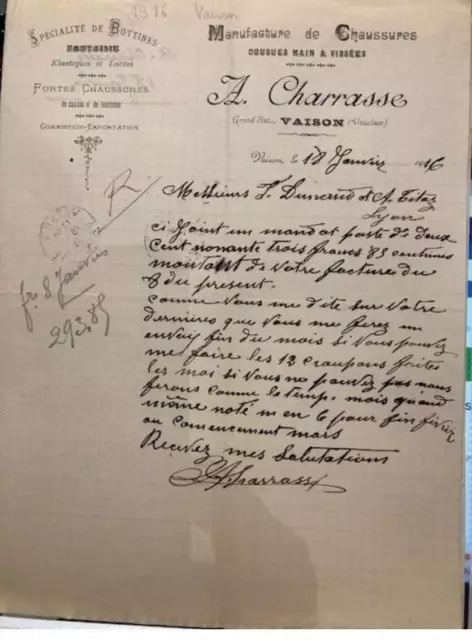 1916 Vaison
SPÉCIALITÉ DE BOTTINES
FANTAISIE
Elastiques et Lacées
FORTES CHAUSSURES
DE CHASSE ET DE
COMMISSION-EXPORTATION
Manufacture de Chaussures
COUSUES MAIN & VISSÉES
A. Charrasse
Grand'Rue, VAISON (Vaucluse)
Vaison, le 18 Janvier 1916
Messieurs F. Dunand et A.
Lyon
Ci joint un mandat poste de deux
Cent nonante trois francs 85 centimes
montant de votre facture du
8 du present.
Comme vous me dite sur votre
dernieres que vous me ferez un
envoy fin du mois si vous pouvez
me faire les 12 croupons faites
les moi si vous ne pouvez pas nous
ferons comme le temps. mais quand
même noté m en 6 pour fin fivrier
ou comencement mars
Recevez mes salutations
A Charrasse
fr 8 Janvier
293.85